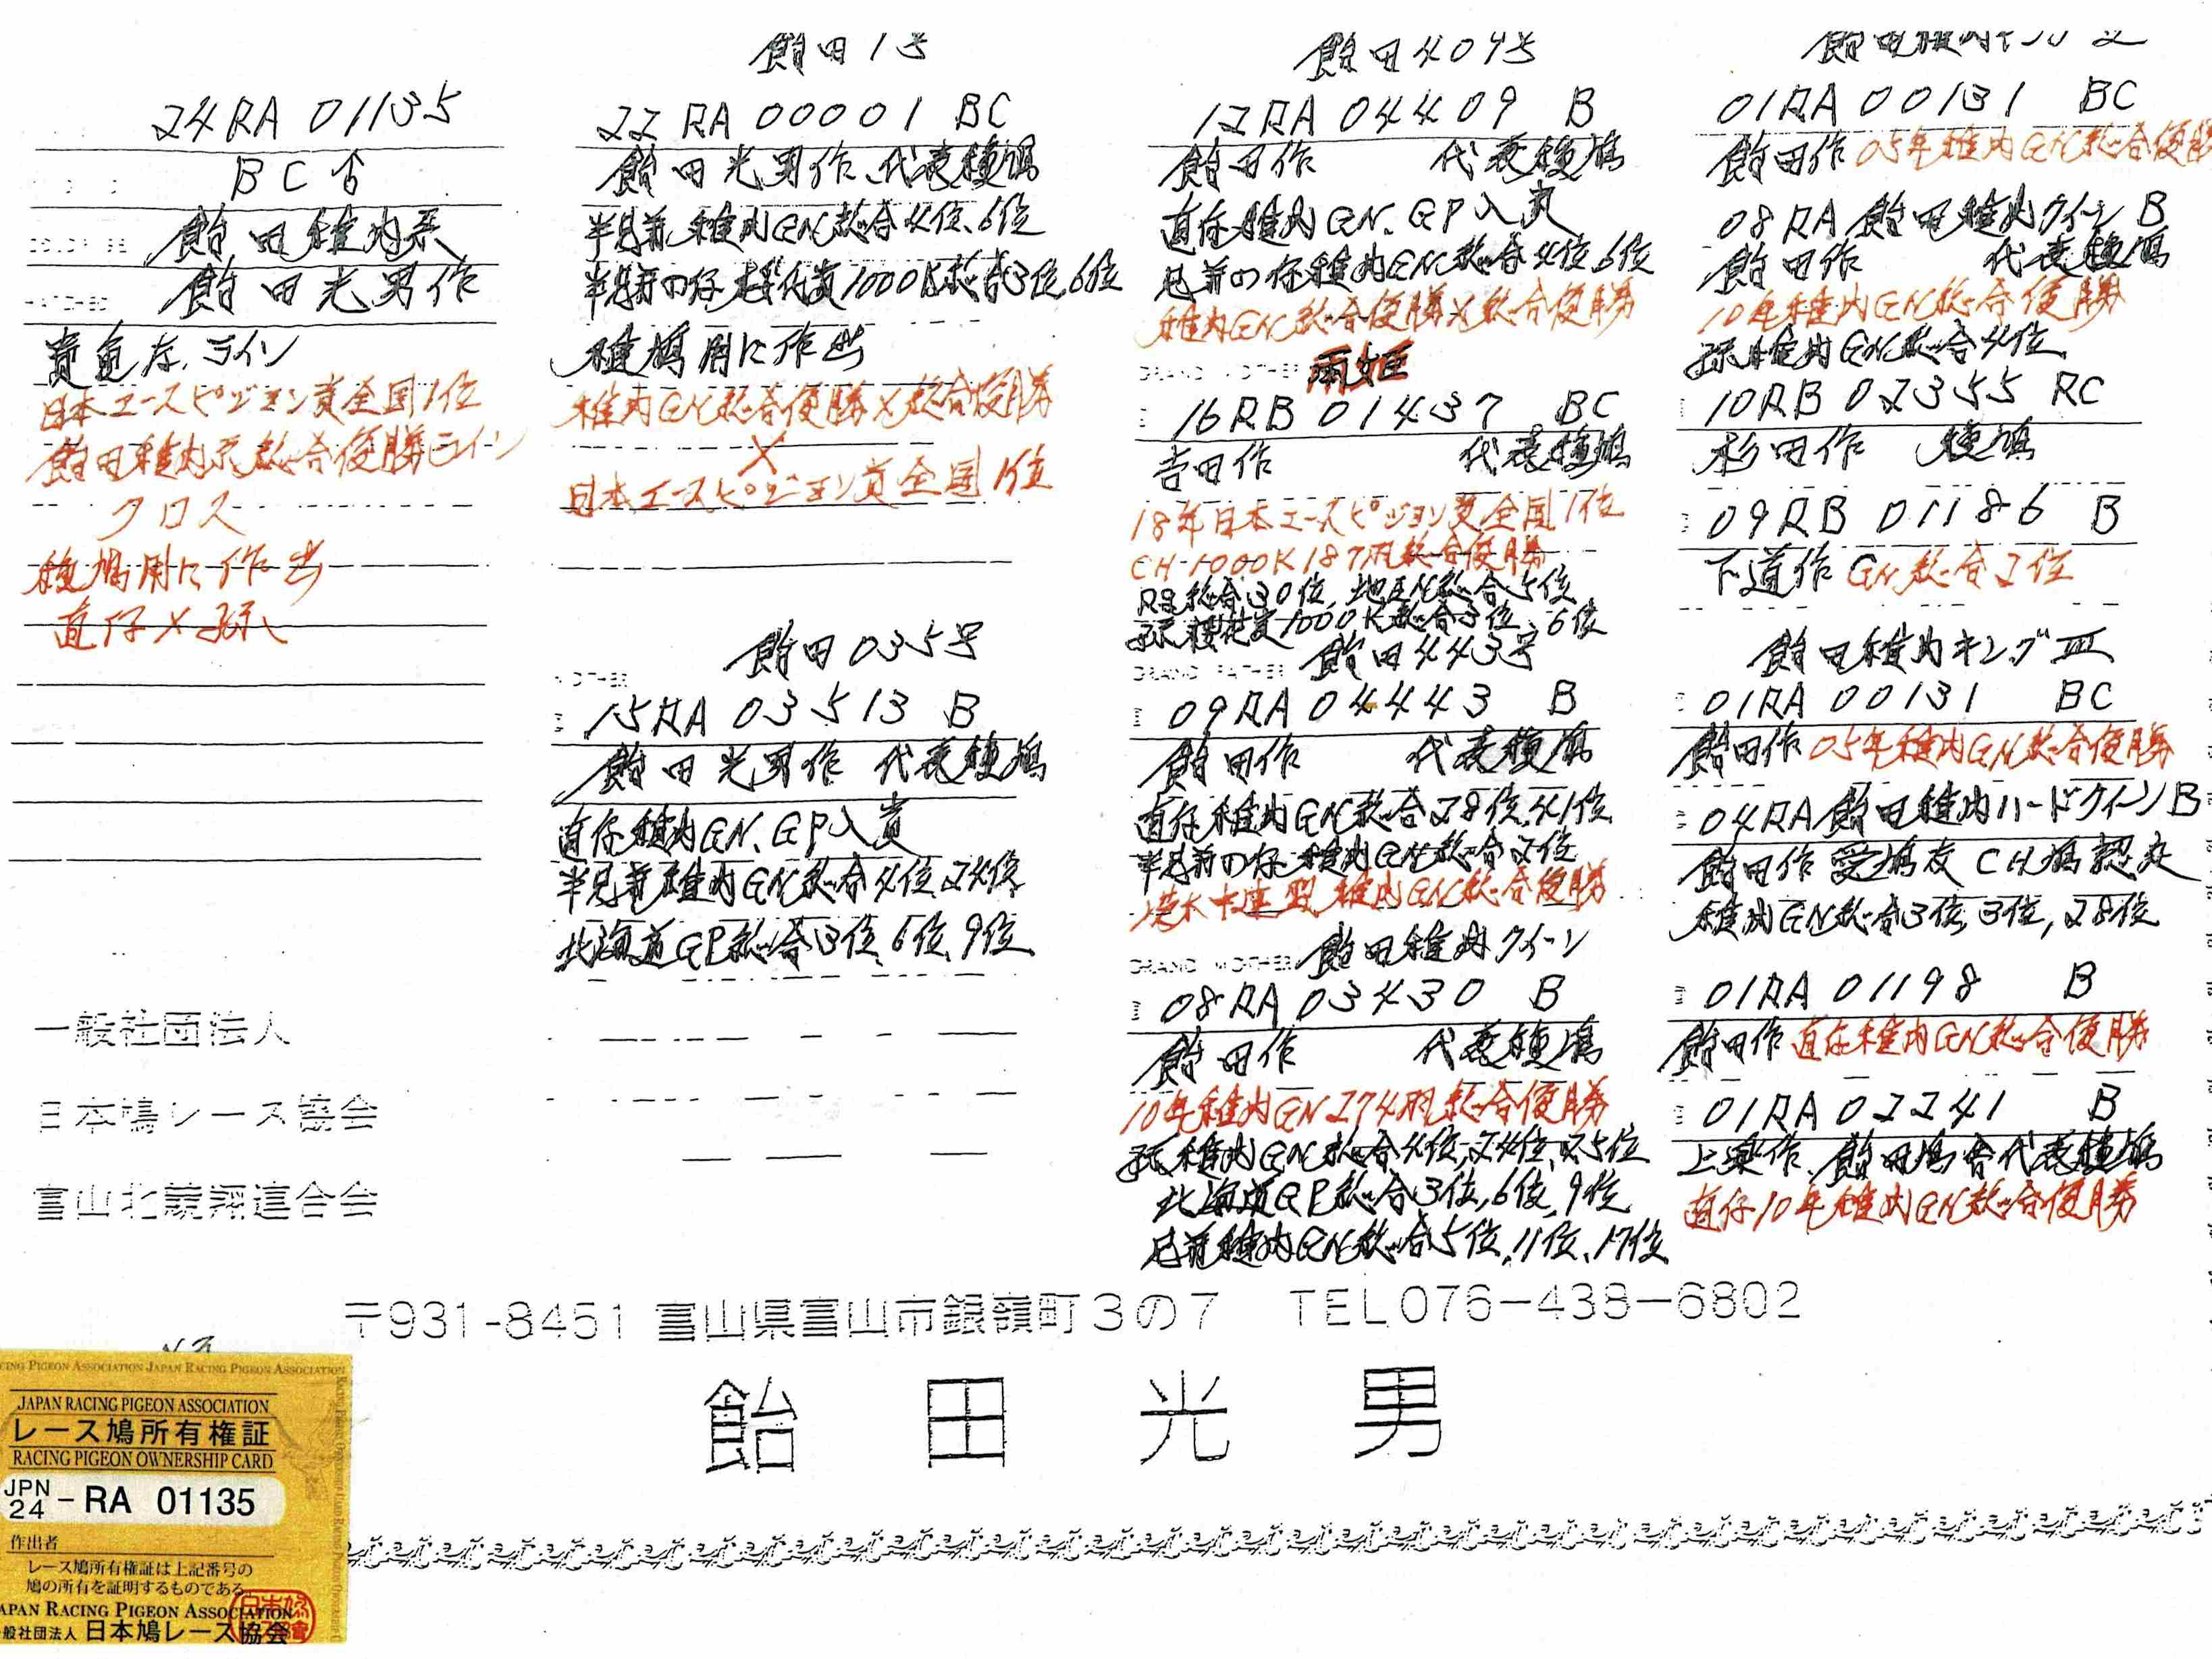 24RA01135
BC♂
飴田稚内系
飴田光男作
貴重なライン
日本エースピジョン賞全国1位
飴田稚内系総合優勝ライン
クロス
種鳩用に作出
直仔×孫
一般社団法人
日本鳩レース協会
富山北競翔連合会
飴田1号
22RA00001 BC
飴田光男作、代表種鳩
半兄弟稚内GN総合4位、6位
1000K総合3位,6位
種鳩用に作出
稚内GN総合優勝×総合優勝
×
日本エースピジョン賞全国1位
飴田035号
15RA03513 B
飴田光男作 代表種鳩
直仔稚内GN、GP入賞
半兄弟稚内GN総合4位、24位
北海道GP総合3位、6位、9位
飴田409号
12RA04409 B
飴田作 代表種鳩
直仔稚内GN、GP入賞
兄弟の仔稚内GN総合4位、6位
稚内GN総合優勝×総合優勝
GRAND MOTHER 雨姫
16RB01437 BC
吉田作 代表種鳩
18年日本エースピジョン賞全国1位
CH-1000K187羽総合優勝
Rg総合30位,地区N総合5位
1000K総合3位、6位
GRAND FATHER 飴田443号
09RA04443 B
飴田作 代表種鳩
直仔稚内GN総合28位、41位
半兄弟の仔稚内GN総合2位
稚内GN総合優勝
GRAND MOTHER 飴田稚内クイーン
08RA03430 B
飴田作 代表種鳩
10年稚内GN274羽総合優勝
孫稚内GN総合4位,24位,25位
北海道GP総合3位,6位,9位
兄弟稚内GN総合5位,11位、17位
01RA00131 BC
飴田作 05年稚内GN総合優勝
08RA飴田稚内クイーンB
飴田作 代表種鳩
10年稚内GN総合優勝
孫稚内GN総合4位
10RB02355 RC
杉田作 種鳩
09RB01186 B
下道作 GN総合2位
飴田稚内キングⅢ
01RA00131 BC
飴田作 05年稚内GN総合優勝
04RA飴田稚内ハードクイーンB
飴田作 愛鳩友CH鳩認定
稚内GN総合3位,3位,28位
01RA01198 B
飴田作 直仔稚内GN総合優勝
01RA02241 B
上楽作、飴田鳩舎代表種鳩
直仔10年稚内GN総合優勝
〒931-8451 富山県富山市銀嶺町3の7 TEL076-438-6802
飴田光男
JAPAN RACING PIGEON ASSOCIATION
レース鳩所有権証
RACING PIGEON OWNERSHIP CARD
JPN
24 - RA 01135
作出者
レース鳩所有権証は上記番号の
鳩の所有を証明するものである。
JAPAN RACING PIGEON ASSOCIATION
一般社団法人 日本鳩レース協会